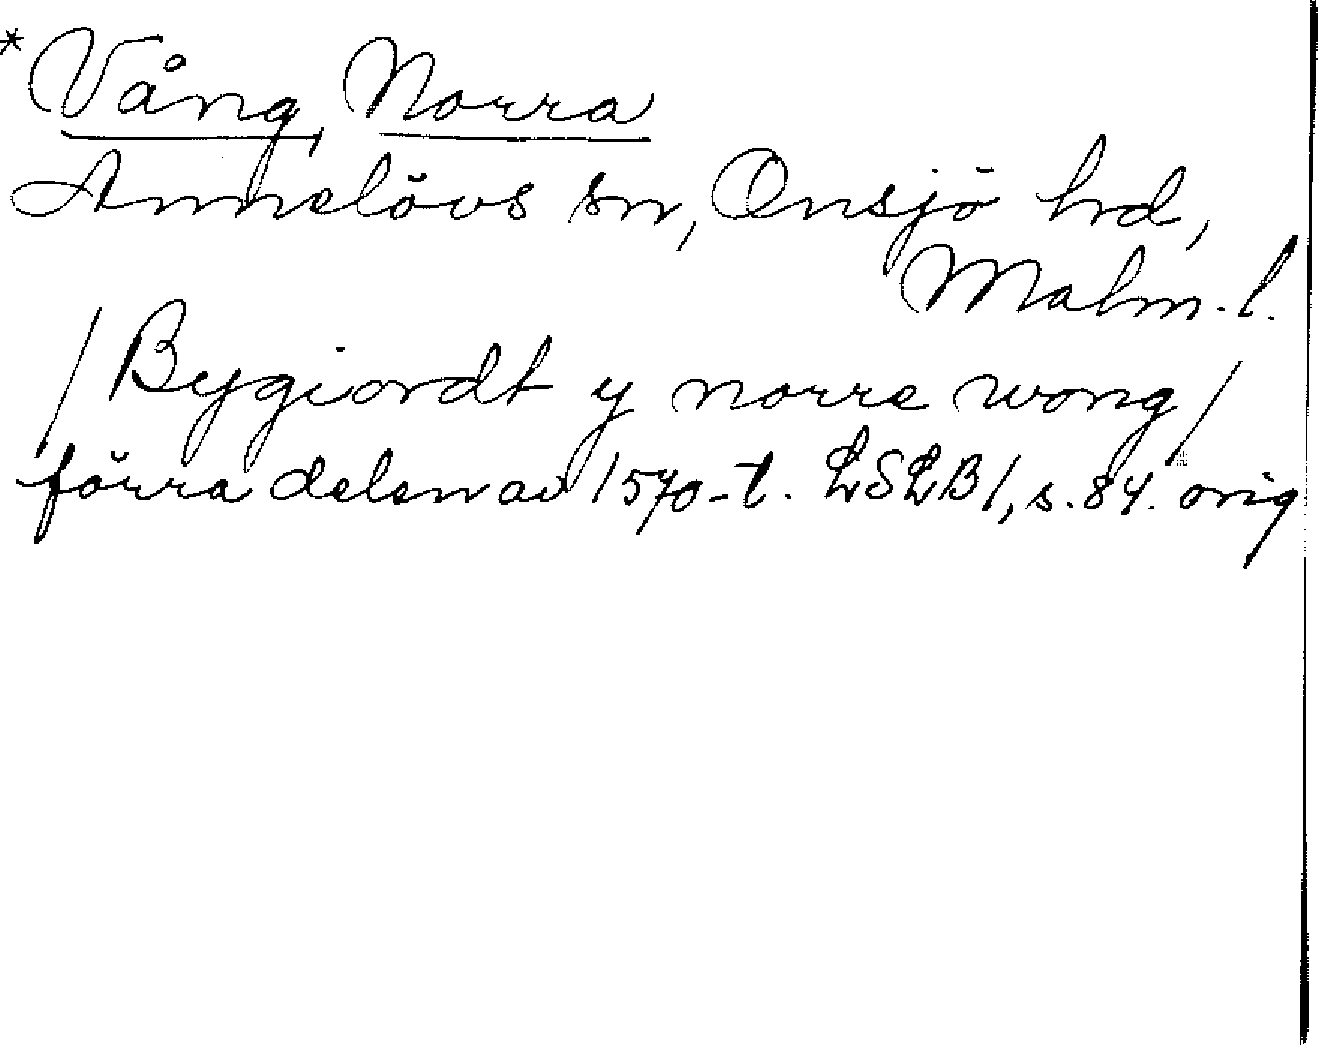 *Vång, Norra
Annelövs sn, Onsjö hd,
Malm. l.
/Bygiordt y norre wong/
förra delen av 1570-t. LSLB1, s. 84. orig